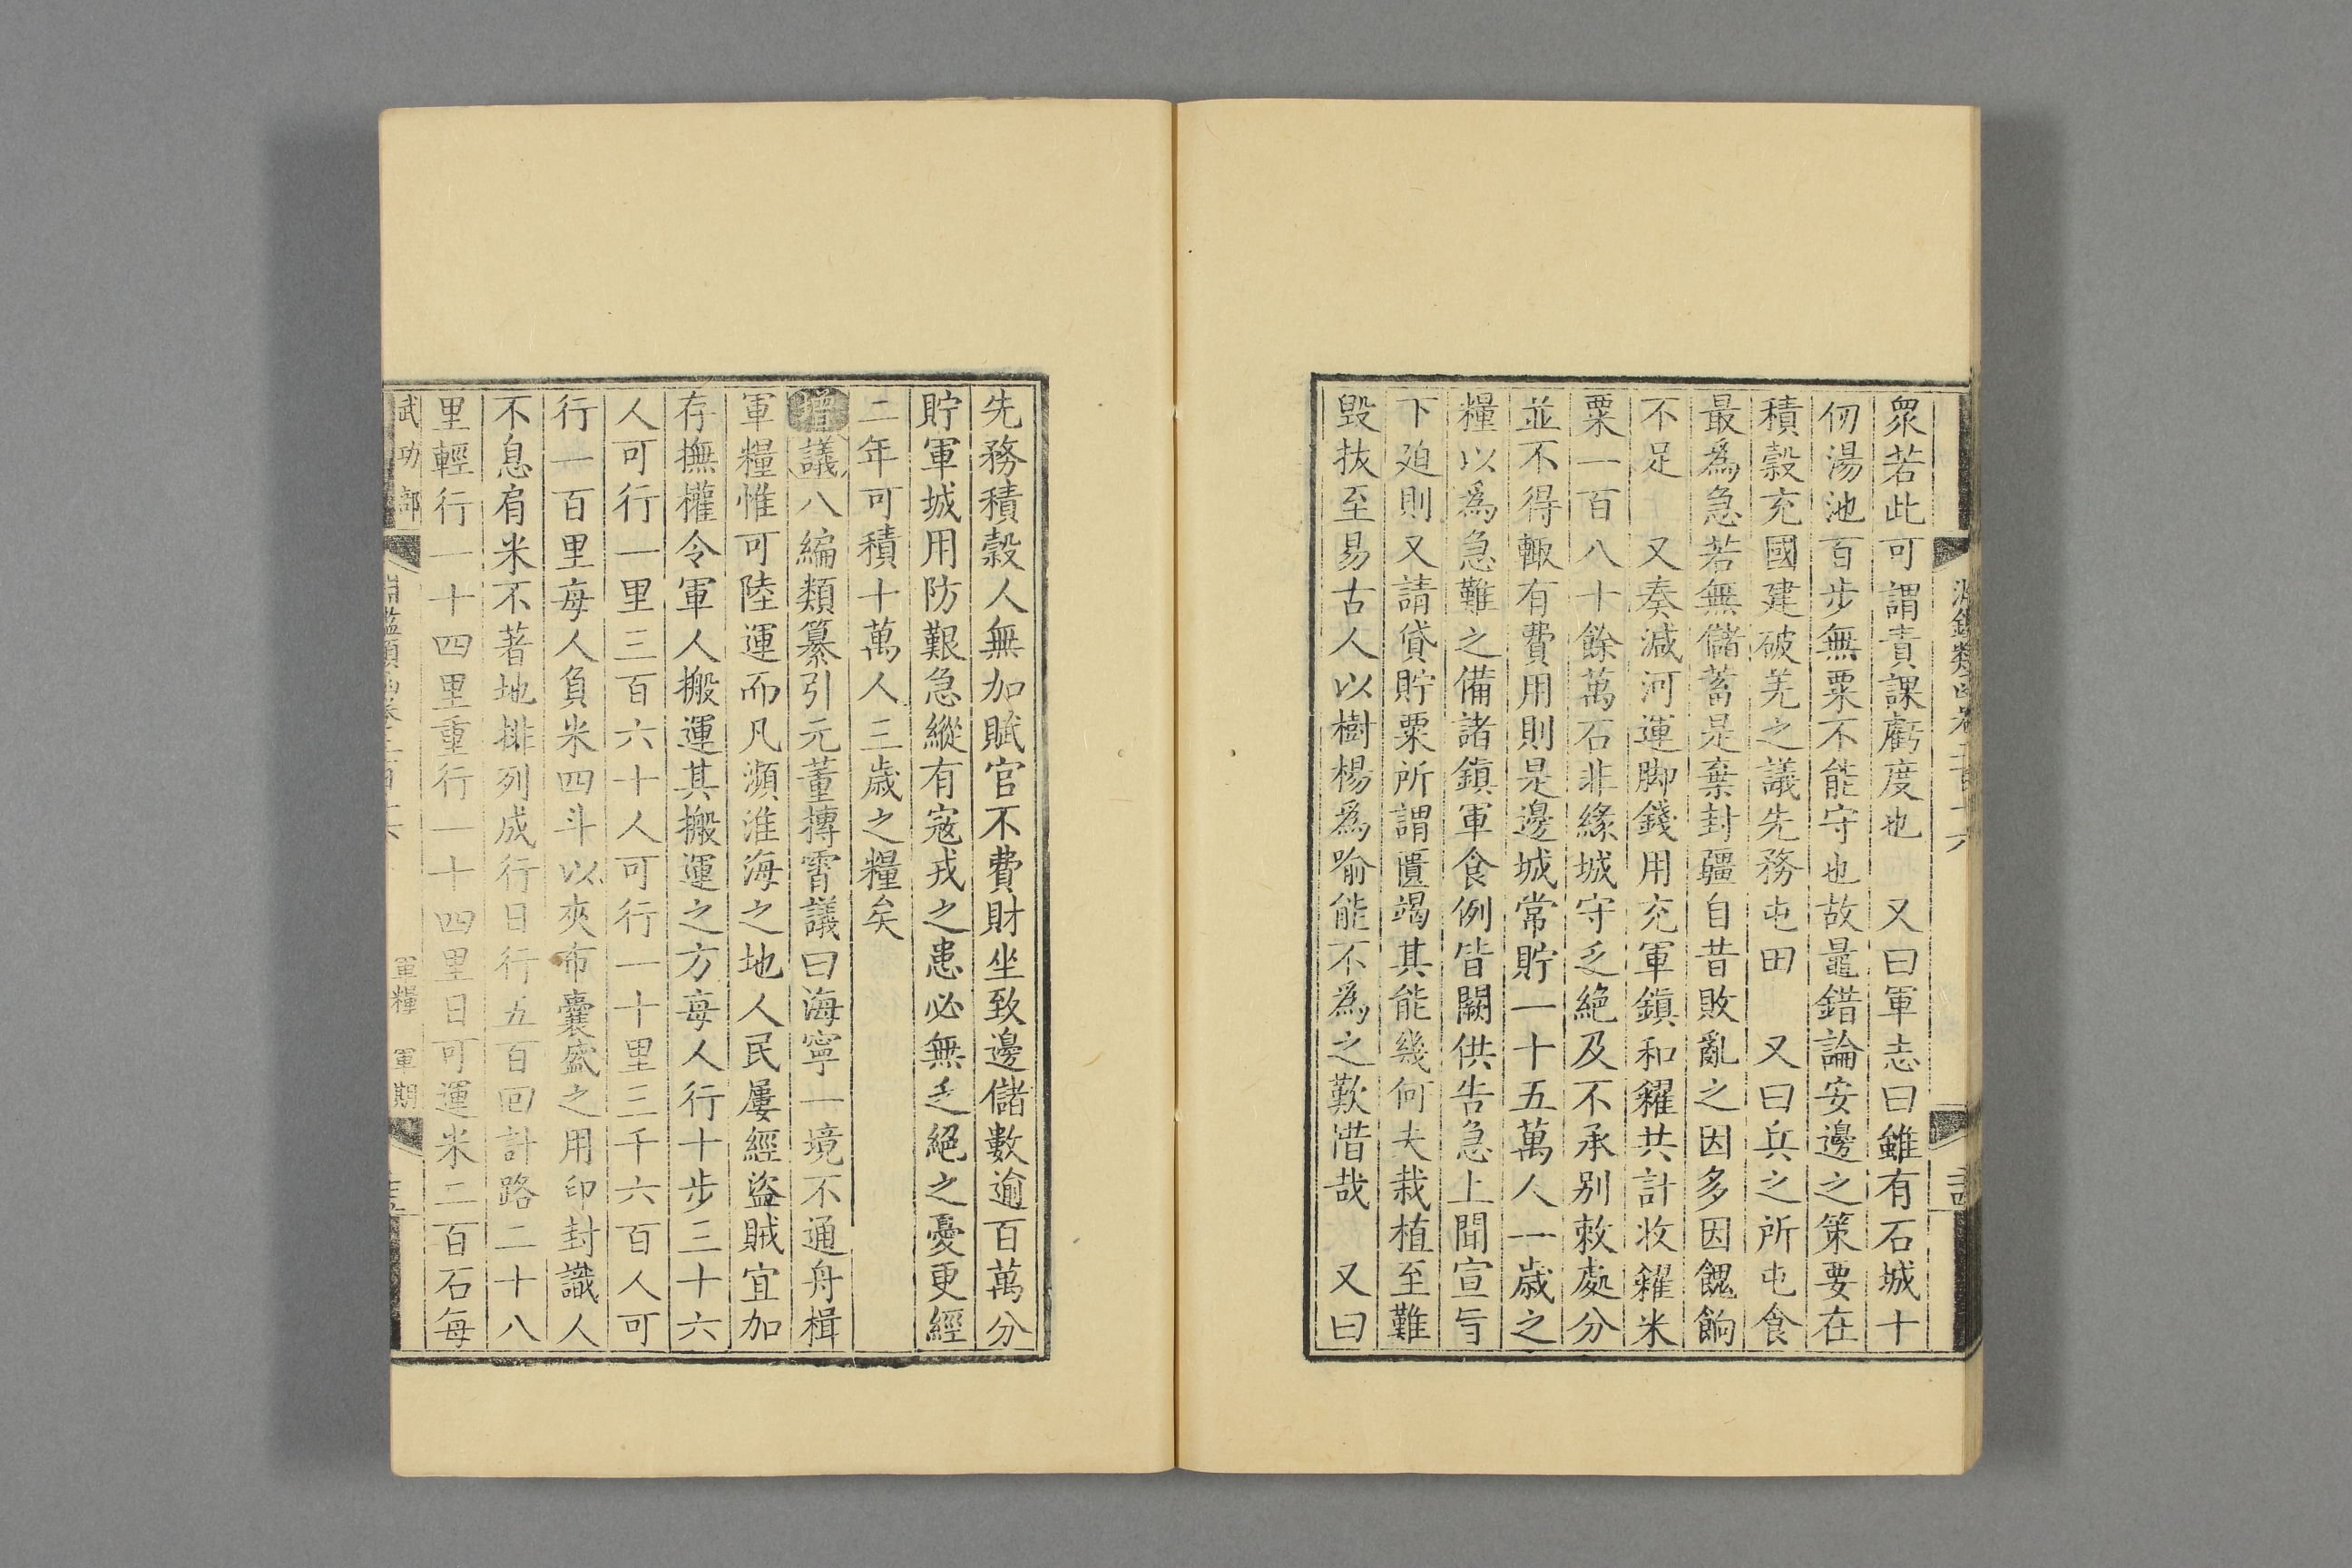 衆若此可謂責課虧度也　又曰軍志曰雖有石城十
仞湯池百步無粟不能守也故鼂錯論安邊之策要在
積穀充國建破羌之議先務屯田　又曰兵之所屯食
最爲急若無儲蓄是棄封疆自昔敗亂之因多因餽餉
不足　又奏減河運脚錢用充軍鎮和糴共計收糴米
粟一百八十餘萬石非緣城守乏絕及不承别敕處分
並不得輙有費用則是邊城常貯一十五萬人一歲之
糧以爲急難之備諸鎮軍食例皆闕供告急上聞宣旨
下廹則又請貸貯粟所謂匱竭其能幾何夫栽植至難
毁拔至易古人以樹楊爲喻能不爲之歎惜哉　又曰
先務積穀人無加賦官不費財坐致邊儲數逾百萬分
貯軍城用防艱急縱有寇戎之患必無乏絕之憂更經
二年可積十萬人三歲之糧矣
增議八編類纂引元董摶霄議曰海寧一境不通舟楫
軍糧惟可陸運而凡瀕淮海之地人民屢經盜賊宜加
存撫權令軍人搬運其搬運之方每人行十步三十六
人可行一里三百六十人可行一十里三千六百人可
行一百里每人負米四斗以夾布囊盛之用印封識人
不息肩米不著地排列成行日行五百回計路二十八
里輕行一十四里重行一十四里日可運米二百石每
武功部　軍糧　軍期